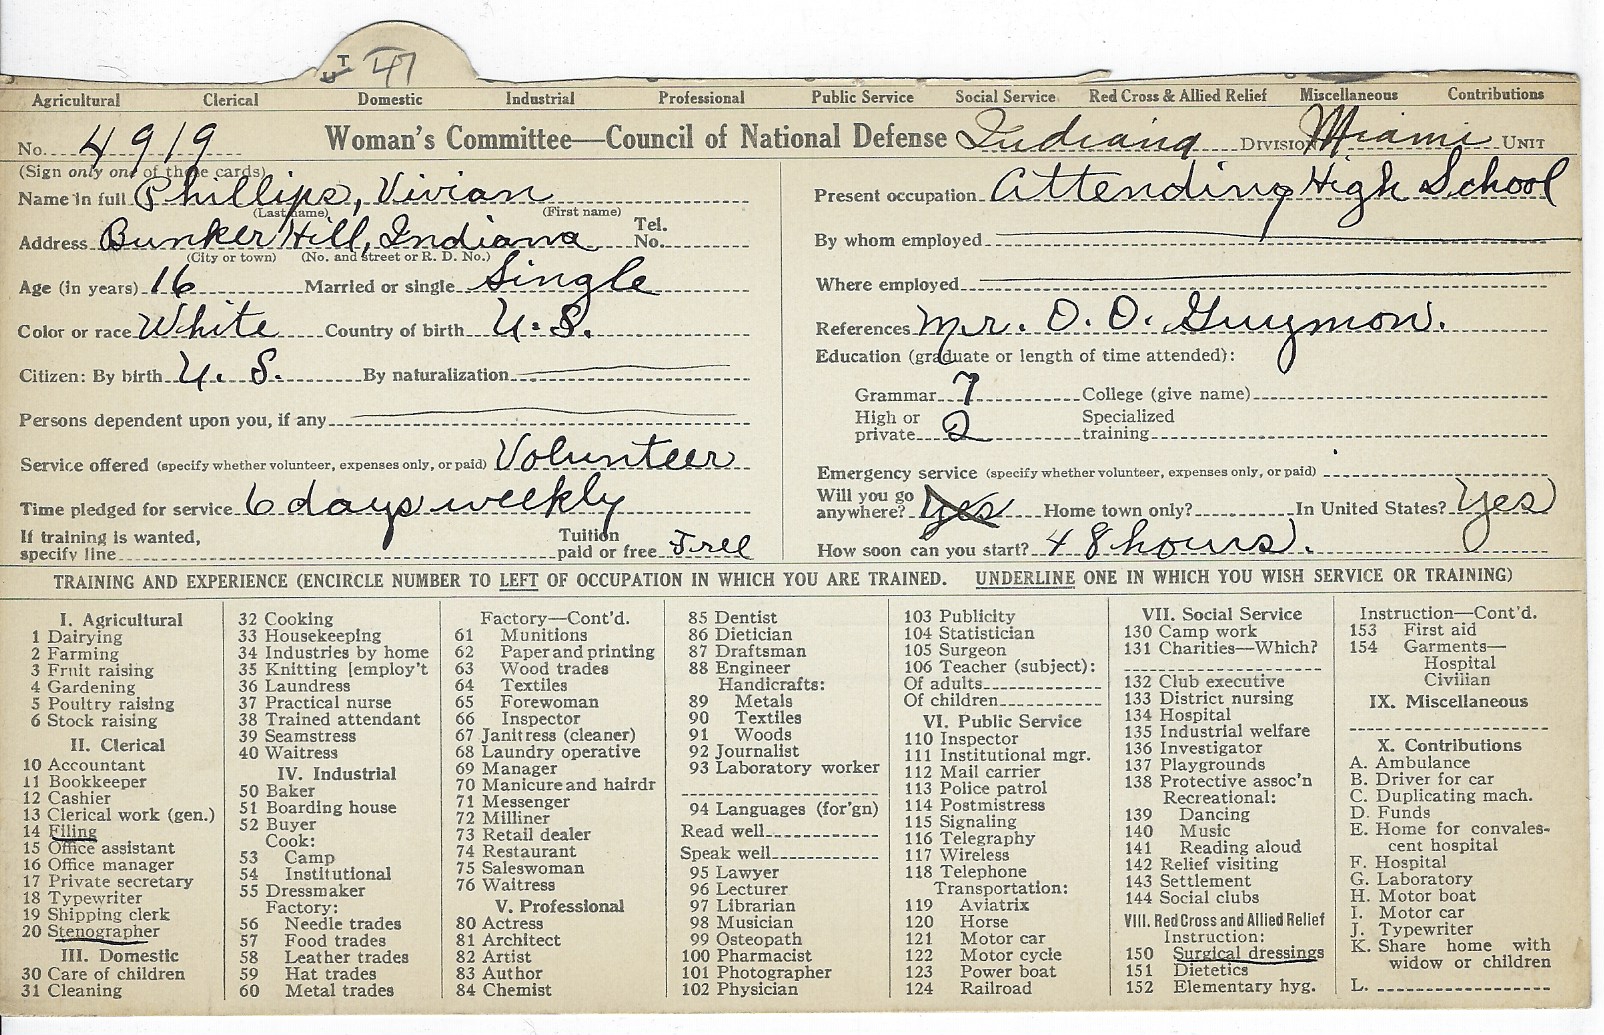 UT 47
Agricultural Clerical Domestic Industrial Professional Public Service Social Service Red Cross & Allied Relief Miscellaneous Contributions
No. 4919 Woman's Committee—Council of National Defense Indiana Division Miami Unit
(Sign only one of these cards)
Name in full Phillips, Vivian
(Last name) (First name)
Address Bunker Hill, Indiana Tel. No.
(City or town) (No. and street or R. D. No.)
Age (in years) 16 Married or single Single
Color or race White Country of birth U. S.
Citizen: By birth U. S. By naturalization
Persons dependent upon you, if any
Service offered (specify whether volunteer, expenses only, or paid) Volunteer
Time pledged for service 6 days weekly
If training is wanted, Tuition
specify line paid or free Free
Present occupation Attending High School
By whom employed
Where employed
References Mr. O. O. Guymon.
Education (graduate or length of time attended):
Grammar 7 College (give name)
High or Specialized
private 2 training
Emergency service (specify whether volunteer, expenses only, or paid)
Will you go
anywhere? Yes Home town only? In United States? Yes
How soon can you start? 48 hours.
TRAINING AND EXPERIENCE (ENCIRCLE NUMBER TO LEFT OF OCCUPATION IN WHICH YOU ARE TRAINED. UNDERLINE ONE IN WHICH YOU WISH SERVICE OR TRAINING)
I. Agricultural
1 Dairying
2 Farming
3 Fruit raising
4 Gardening
5 Poultry raising
6 Stock raising
II. Clerical
10 Accountant
11 Bookkeeper
12 Cashier
13 Clerical work (gen.)
14 Filing
15 Office assistant
16 Office manager
17 Private secretary
18 Typewriter
19 Shipping clerk
20 Stenographer
III. Domestic
30 Care of children
31 Cleaning
32 Cooking
33 Housekeeping
34 Industries by home
35 Knitting [employ't
36 Laundress
37 Practical nurse
38 Trained attendant
39 Seamstress
40 Waitress
IV. Industrial
50 Baker
51 Boarding house
52 Buyer
Cook:
53 Camp
54 Institutional
55 Dressmaker
Factory:
56 Needle trades
57 Food trades
58 Leather trades
59 Hat trades
60 Metal trades
Factory—Cont'd.
61 Munitions
62 Paper and printing
63 Wood trades
64 Textiles
65 Forewoman
66 Inspector
67 Janitress (cleaner)
68 Laundry operative
69 Manager
70 Manicure and hairdr
71 Messenger
72 Milliner
73 Retail dealer
74 Restaurant
75 Saleswoman
76 Waitress
V. Professional
80 Actress
81 Architect
82 Artist
83 Author
84 Chemist
85 Dentist
86 Dietician
87 Draftsman
88 Engineer
Handicrafts:
89 Metals
90 Textiles
91 Woods
92 Journalist
93 Laboratory worker
94 Languages (for'gn)
Read well
Speak well
95 Lawyer
96 Lecturer
97 Librarian
98 Musician
99 Osteopath
100 Pharmacist
101 Photographer
102 Physician
103 Publicity
104 Statistician
105 Surgeon
106 Teacher (subject):
Of adults
Of children
VI. Public Service
110 Inspector
111 Institutional mgr.
112 Mail carrier
113 Police patrol
114 Postmistress
115 Signaling
116 Telegraphy
117 Wireless
118 Telephone
Transportation:
119 Aviatrix
120 Horse
121 Motor car
122 Motor cycle
123 Power boat
124 Railroad
VII. Social Service
130 Camp work
131 Charities—Which?
132 Club executive
133 District nursing
134 Hospital
135 Industrial welfare
136 Investigator
137 Playgrounds
138 Protective assoc'n
Recreational:
139 Dancing
140 Music
141 Reading aloud
142 Relief visiting
143 Settlement
144 Social clubs
VIII. Red Cross and Allied Relief
Instruction:
150 Surgical dressings
151 Dietetics
152 Elementary hyg.
Instruction—Cont'd.
153 First aid
154 Garments—
Hospital
Civilian
IX. Miscellaneous
X. Contributions
A. Ambulance
B. Driver for car
C. Duplicating mach.
D. Funds
E. Home for convales-
cent hospital
F. Hospital
G. Laboratory
H. Motor boat
I. Motor car
J. Typewriter
K. Share home with
widow or children
L.